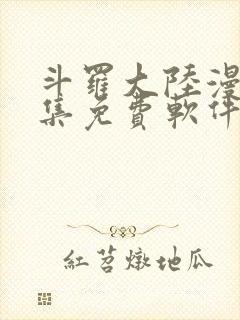 斗羅大陸漫
集免費軟件
紅苕燉地瓜